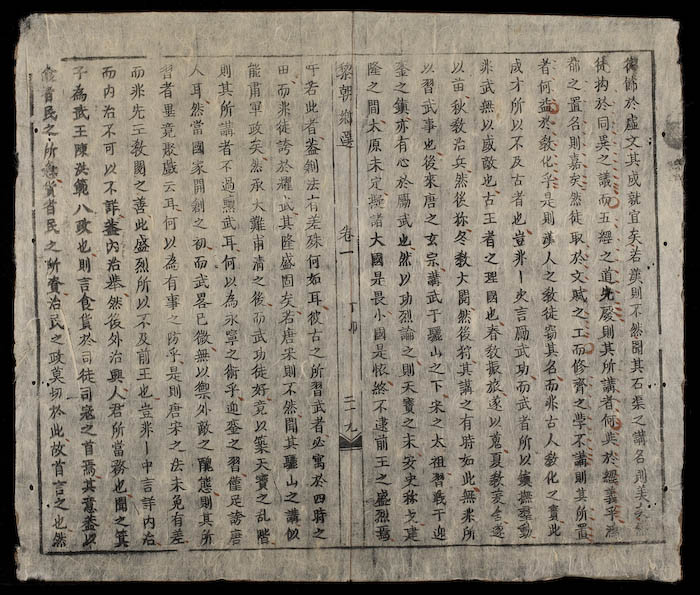 復飾於虛文其成就宜矣若漢則不然聞其石渠之講名則美矣
徒拘於同異之議而五經之道先廢則其所講者何與於經義乎鴻
都之置名則嘉矣然徒取於文賦之工而修齊之學不講則其所置
者何益於教化乎是則漢人之教徒竊其名而非古人教化之實此
成才所以不及古者也豈非一次言厲武功而武者所以鎮撫聲動
非武無以威敵也古王者之理國也春教振旅遂以蒐夏教茇舍遂
以苗秋教治兵然後狝冬教大閱然後狩其講之有時如此無非所
以習武事也後來唐之玄宗講武于驪山之下宋之太祖習戰于迎
鑾之鎮亦有心於厲武也然以功烈論之則天寶之末安史稱戈建
隆之間太原未定諸大國是畏小國是懷終不逮前王之盛烈焉
黎朝鄉選 卷一 丁卯 二十九
乎若此者蓋制法有差殊何如耳彼古之所習武者必寓於四時之
田而非徒誇於耀武其隆盛固矣若唐宋則不然聞其驪山之講似
能肅軍政矣然承大難甫清之後而武功徒好竟以築天寶之乱階
則其所講者不過黷武耳何以為永寧之衛乎迎鑾之習僅足誇唐
人耳然當國家開創之初而武畧已微無以禦外敵之醜態則其所
習者畢竟聚戲云耳何以為有事之防乎是則唐宋之法未免有差
而非先王教閱之善此盛烈所以不及前王也豈非一中言詳內治
而內治不可以不詳蓋內治舉然後外治興人君所當務也聞之箕
子為武王陳洪範八政也則言食貨於司徒司寇之首焉其意蓋以
食者民之所急貨者民之所資治民之政莫切於此故首言之也然